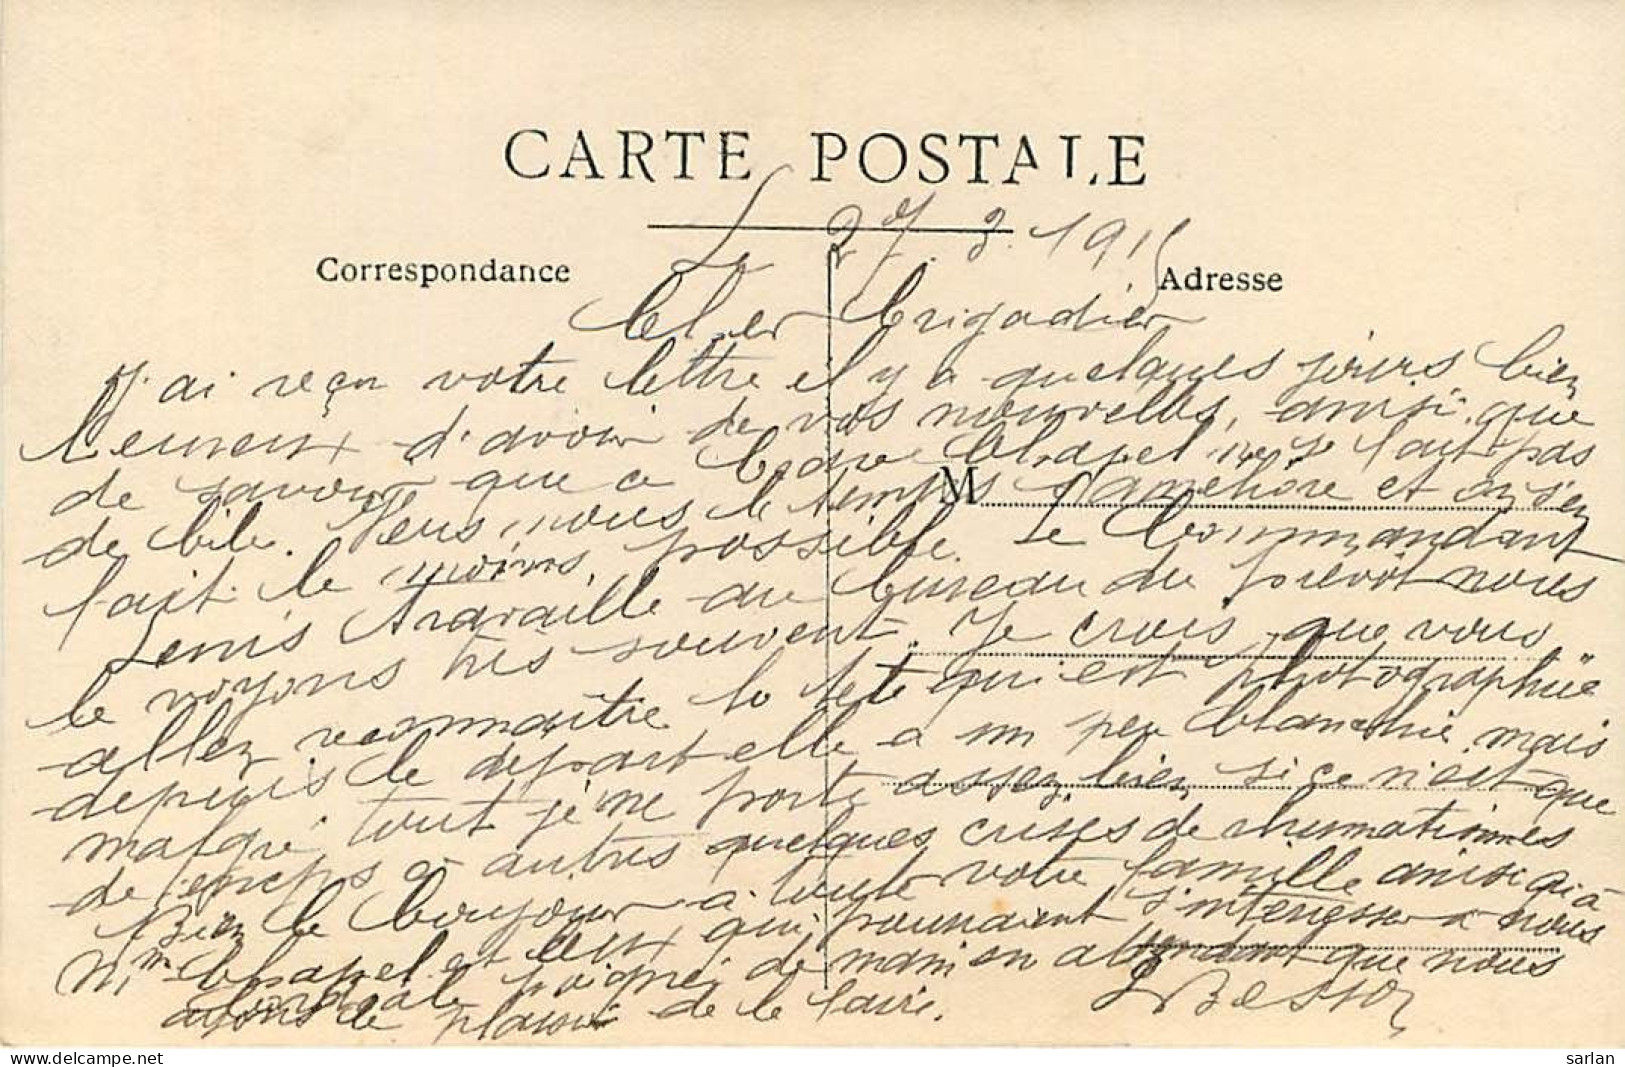 CARTE POSTALE
Le 27. 3. 1915
Correspondance
Adresse
Cher brigadier
J'ai reçu votre lettre il y a quelques jours bien
heureux d'avoir de vos nouvelles, ainsi que
de savoir que ce brave Chapel ne se fait pas
M
de bile. Vers nous le temps s'améliore et on s'en
fait le moins possible. Le Commandant
Denis travaille au bureau du prévôt nous
le voyons très souvent. Je crois que vous
allez reconnaître la tête qui est photographiée
depuis le départ elle a un peu blanchie mais
malgré tout je me porte assez bien, si ce n'est que
de temps à autres quelques crises de rhumatismes
Bien le bonjour à toute votre famille ainsi qu'à
Mme Chapel et ceux qui pourraient s'intéresser à nous
cordiale poignée de main en attendant que nous
ayons le plaisir de le faire.
Besson
sarlan